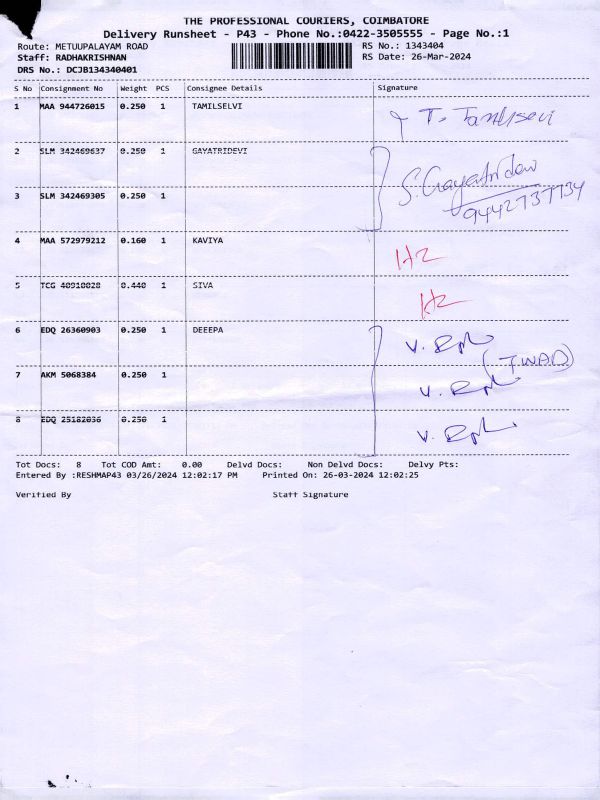 THE PROFESSIONAL COURIERS, COIMBATORE
Delivery Runsheet - P43 - Phone No.:0422-3505555 - Page No.:1
Route: METUUPALAYAM ROAD RS No.: 1343404
Staff: RADHAKRISHNAN RS Date: 26-Mar-2024
DRS No.: DCJB134340401
S No Consignment No Weight PCS Consignee Details Signature
1 MAA 944726015 0.250 1 TAMILSELVI T. Tamilselvi
2 SLM 342469637 0.250 1 GAYATRIDEVI S. Gayatridevi
9442737734
3 SLM 342469305 0.250 1
4 MAA 572979212 0.160 1 KAVIYA H2
5 TCG 40910028 0.440 1 SIVA H2
6 EDQ 26360903 0.250 1 DEEEPA V.
(TWAD)
7 AKM 5068384 0.250 1 V.
8 EDQ 25182036 0.250 1 V.
Tot Docs: 8 Tot COD Amt: 0.00 Delvd Docs: Non Delvd Docs: Delvy Pts:
Entered By :RESHMAP43 03/26/2024 12:02:17 PM Printed On: 26-03-2024 12:02:25
Verified By Statt Signature